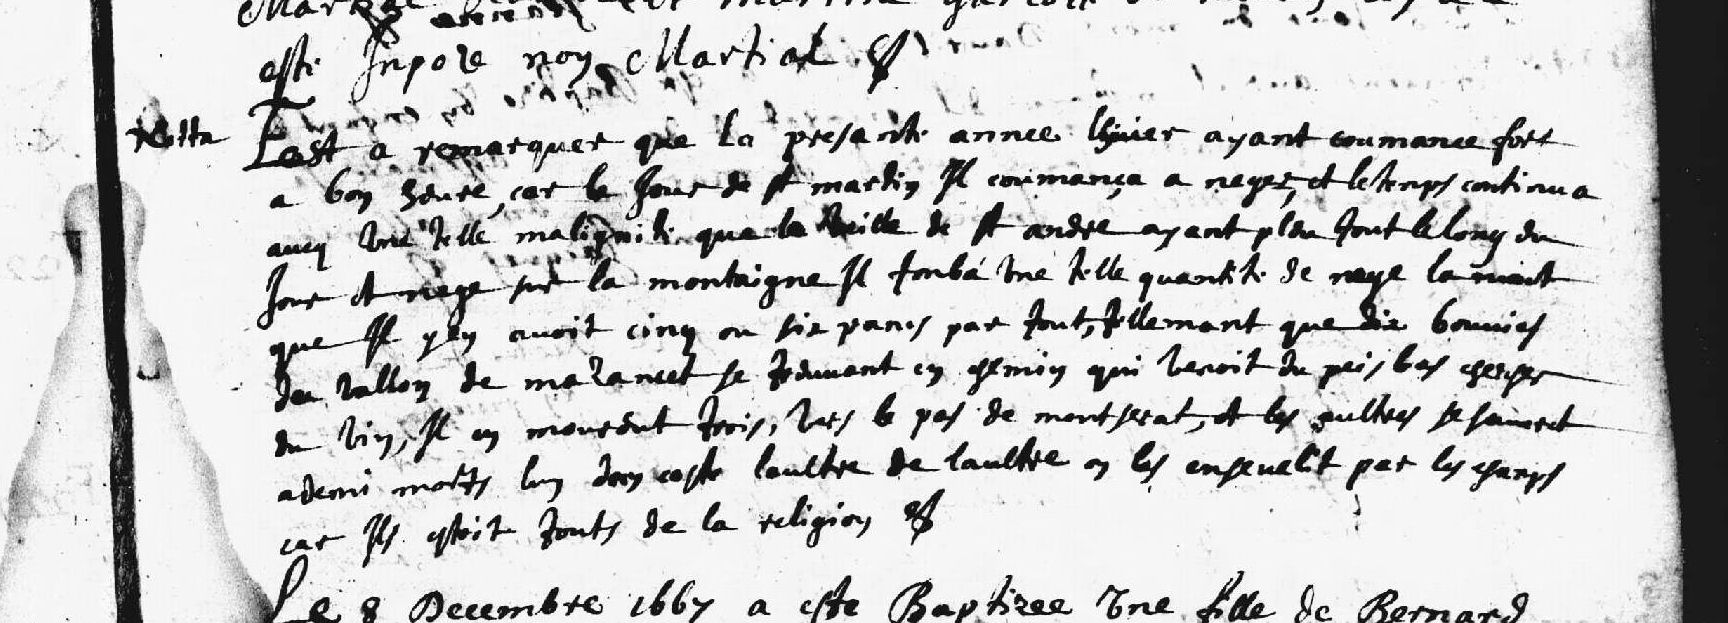 este Inpoze nom Martial
Notta
Jest a remarquer que la presante annee lyver ayant coumance fort
a bon heure, car le Jour de st martin Il coumança a neger, et le temps continua
avecq une telle malignité que la veille de st andre ayant pleu tout le long du
Jour et nege sur la montaigne Il tonba une telle quantité de nege la nuict
que Il y en avoit cinq ou six pans par tout, tellemant que dix bouviers
du vallon de mazamet se trouvant en chemin qui venoit du peis bas chercher
du vin, Il en mourdut trois, vers le pas de montserat, et les aultres se sauverent
a demi morts lun dun coste laultre de laultre on les ensevelit par les champs
car Ils estoit touts de la religion
Le 8 Decembre 1667 a este Baptizee une fille de Bernard